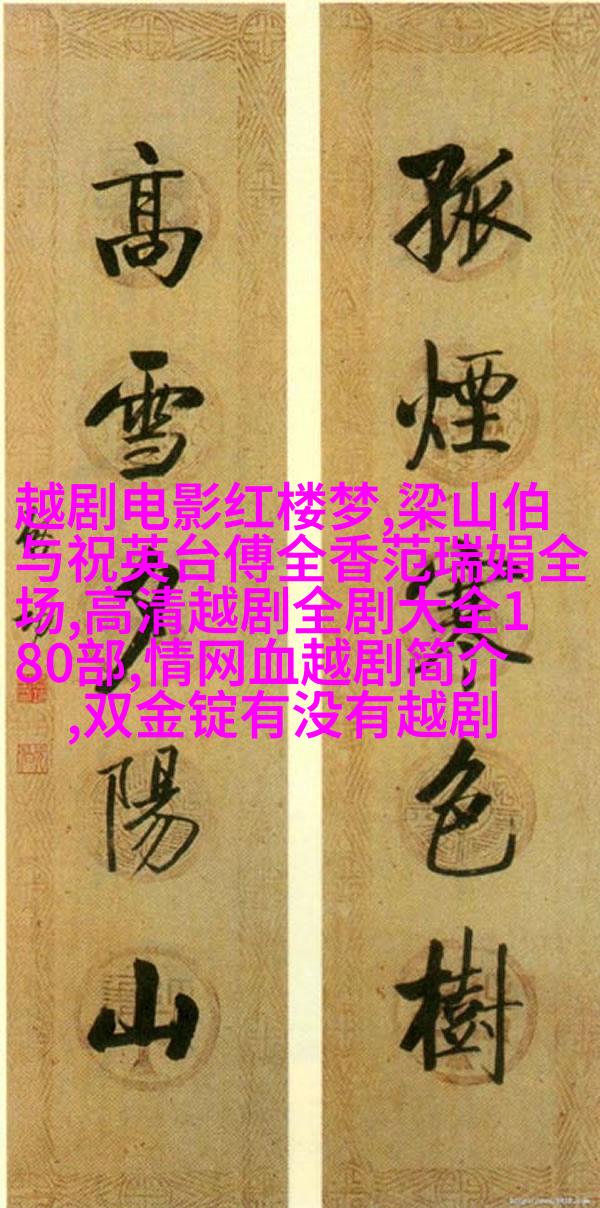 孤煙寒色樹
高雪夕陽山
越剧电影红楼梦,梁山伯
与祝英台傅全香范瑞娟全
场,高清越剧全剧大全1
80部,情网血越剧简介
,双金锭有没有越剧